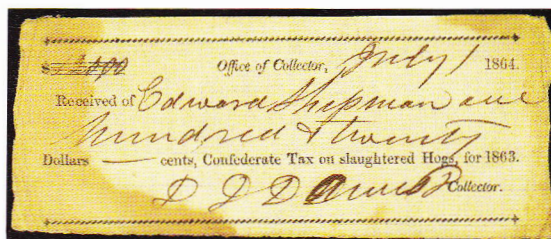 $ 12000 Office of Collector, July 1 1864.
Received of Edward Shipman one
hundred & twenty
Dollars — cents, Confederate Tax on slaughtered Hogs, for 1863.
Collector.